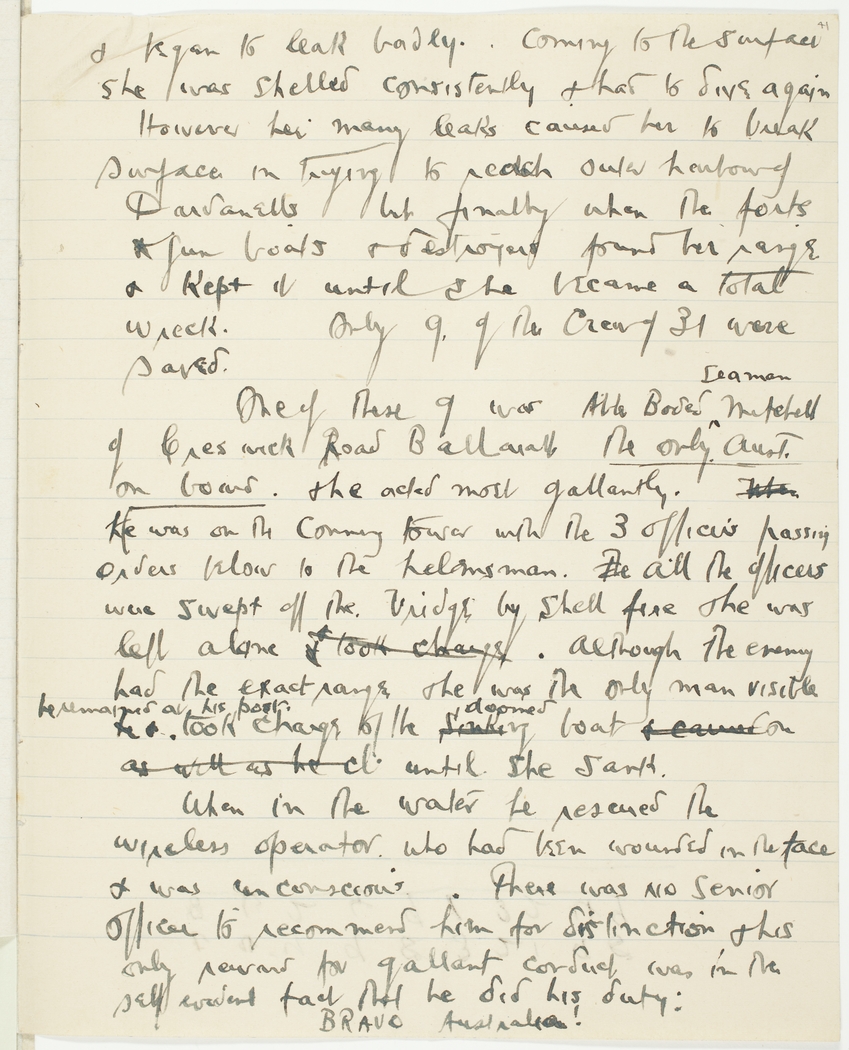 41
& began to leak badly. . Coming to the surface
she was shelled consistently & had to dive again
However her many leaks caused her to break
surface in trying to reach outer harbour of
Dardanells but finally when the forts
& gun boats & destroyers found her range
& Kept it until she became a total
wreck. Only 9. of the Crew of 31 were
saved.
Seaman
One of these 9 was Able Bodied ^ Mitchell
of Creswick Road Ballarat the only Aust.
on board. & he acted most gallantly. When
He was on the Conning tower with the 3 officers passing
orders below to the helmsman. He All the officers
were swept off the. bridge by shell fire & he was
left alone & took charge . Although the enemy
had the exact range & he was the only man visible
he remained at his post. doomed
he & . took charge of the sinking boat & caused on
as well as he cl. until she sank.
When in the water he rescued the
wireless operator. who had been wounded in the face
& was unconscious . There was no Senior
officer to recommend him for distinction & his
only reward for gallant conduct was in the
self evident fact that he did his duty:
BRAVO Australian!